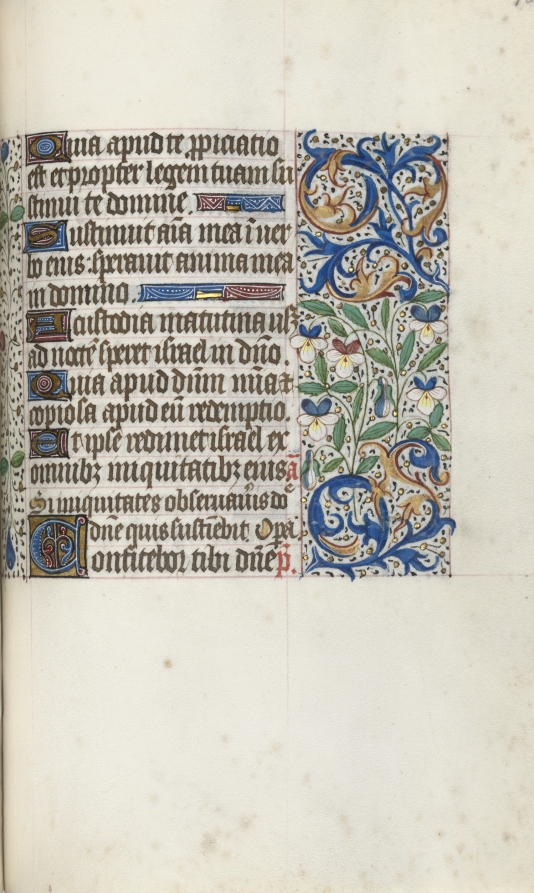 Quia apud te ꝓpiciatio
est et propter legem tuam su
stinui te domine.
Sustinuit aīa mea ī ver
bo eius: speravit anima mea
in domino.
A custodia matutina usꝫ
ad noctē speret israel in dn̄o
Quia apud dūm mīa ⁊
copiosa apud eū redemptio
Et ipse redimet israel ex
omnibꝫ iniquitatibꝫ eius a̅
Si iniquitates observaūis do
dn̄e quis sustinebit Opā
Confitebor tibi dn̄e p̄.